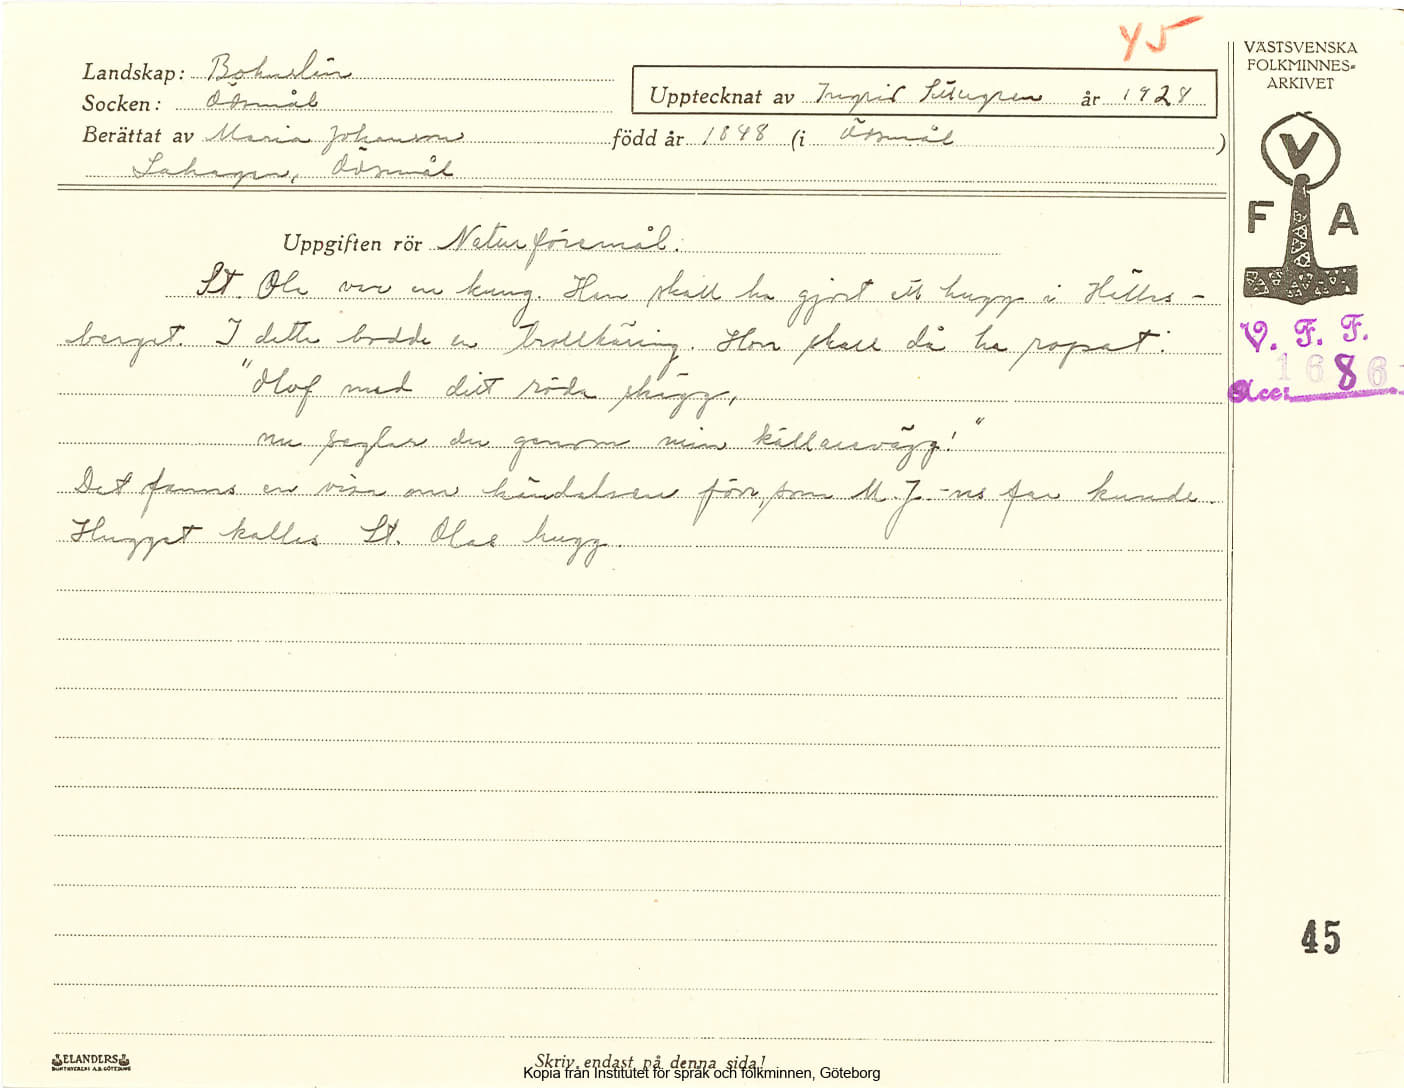 45
VÄSTSVENSKA
FOLKMINNES-
ARKIVET
Landskap: Bohuslän
Socken: Ödsmål
Upptecknat av Ingrid år 1928
Berättat av Maria Johansson född år 1848 (i Ödsmål)
Ödsmål
V
F A
Uppgiften rör Naturföremål.
St. Ola var en kung. Han skall ha gjort ett hugg i Hälles-
berget. I detta bodde en trollkäring. Hon skall då ha ropat:
"Olof med ditt röda skägg,
nu seglar du genom min källarevägg!"
Det fanns en visa om händelsen förr, som M. J-ns far kunde.
Hugget kallas St. Olas hugg.
V. F. F.
Acc: 1686
45
ELANDERS
Skriv endast på denna sida!
Kopia från Institutet för språk och folkminnen, Göteborg